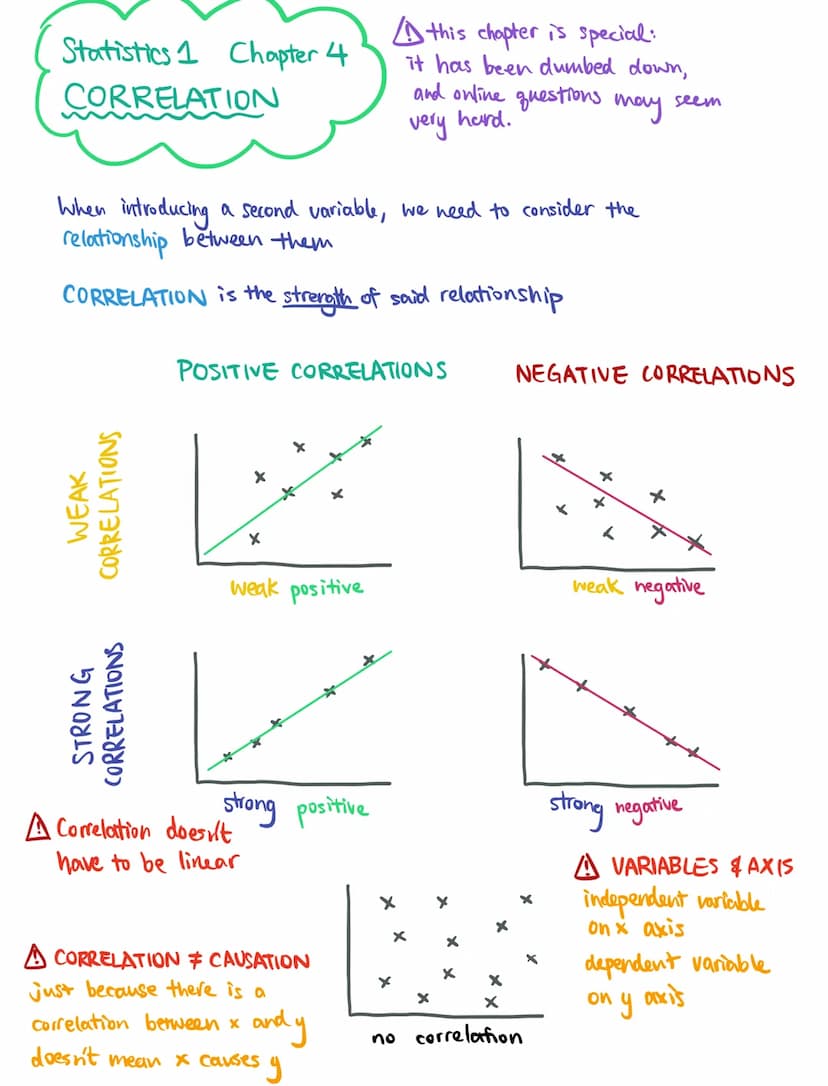 Statistics 1 Chapter 4
CORRELATION
⚠ this chapter is special:
it has been dumbed down,
and online questions may seem
very hard.
When introducing a second variable, we need to consider the
relationship between them
CORRELATION is the strength of said relationship
POSITIVE CORRELATIONS
NEGATIVE CORRELATIONS
WEAK
CORRELATIONS
weak positive
weak negative
STRONG
CORRELATIONS
strong positive
strong negative
⚠ Correlation doesn't
have to be linear
⚠ VARIABLES & AXIS
independent variable
on x axis
dependent variable
on y axis
⚠ CORRELATION ≠ CAUSATION
just because there is a
correlation between x and y
doesn't mean x causes y
no correlation